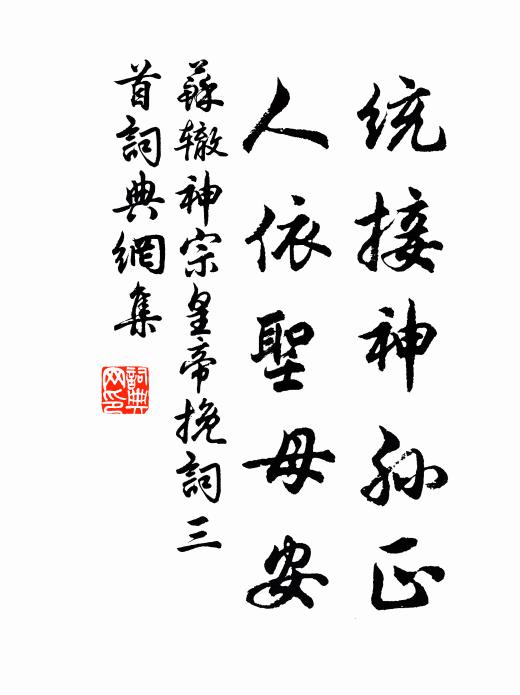 统接神孙正
人依聖母安
蘇辙神宗皇帝挽詞三
首詞典網集
詞典
网印